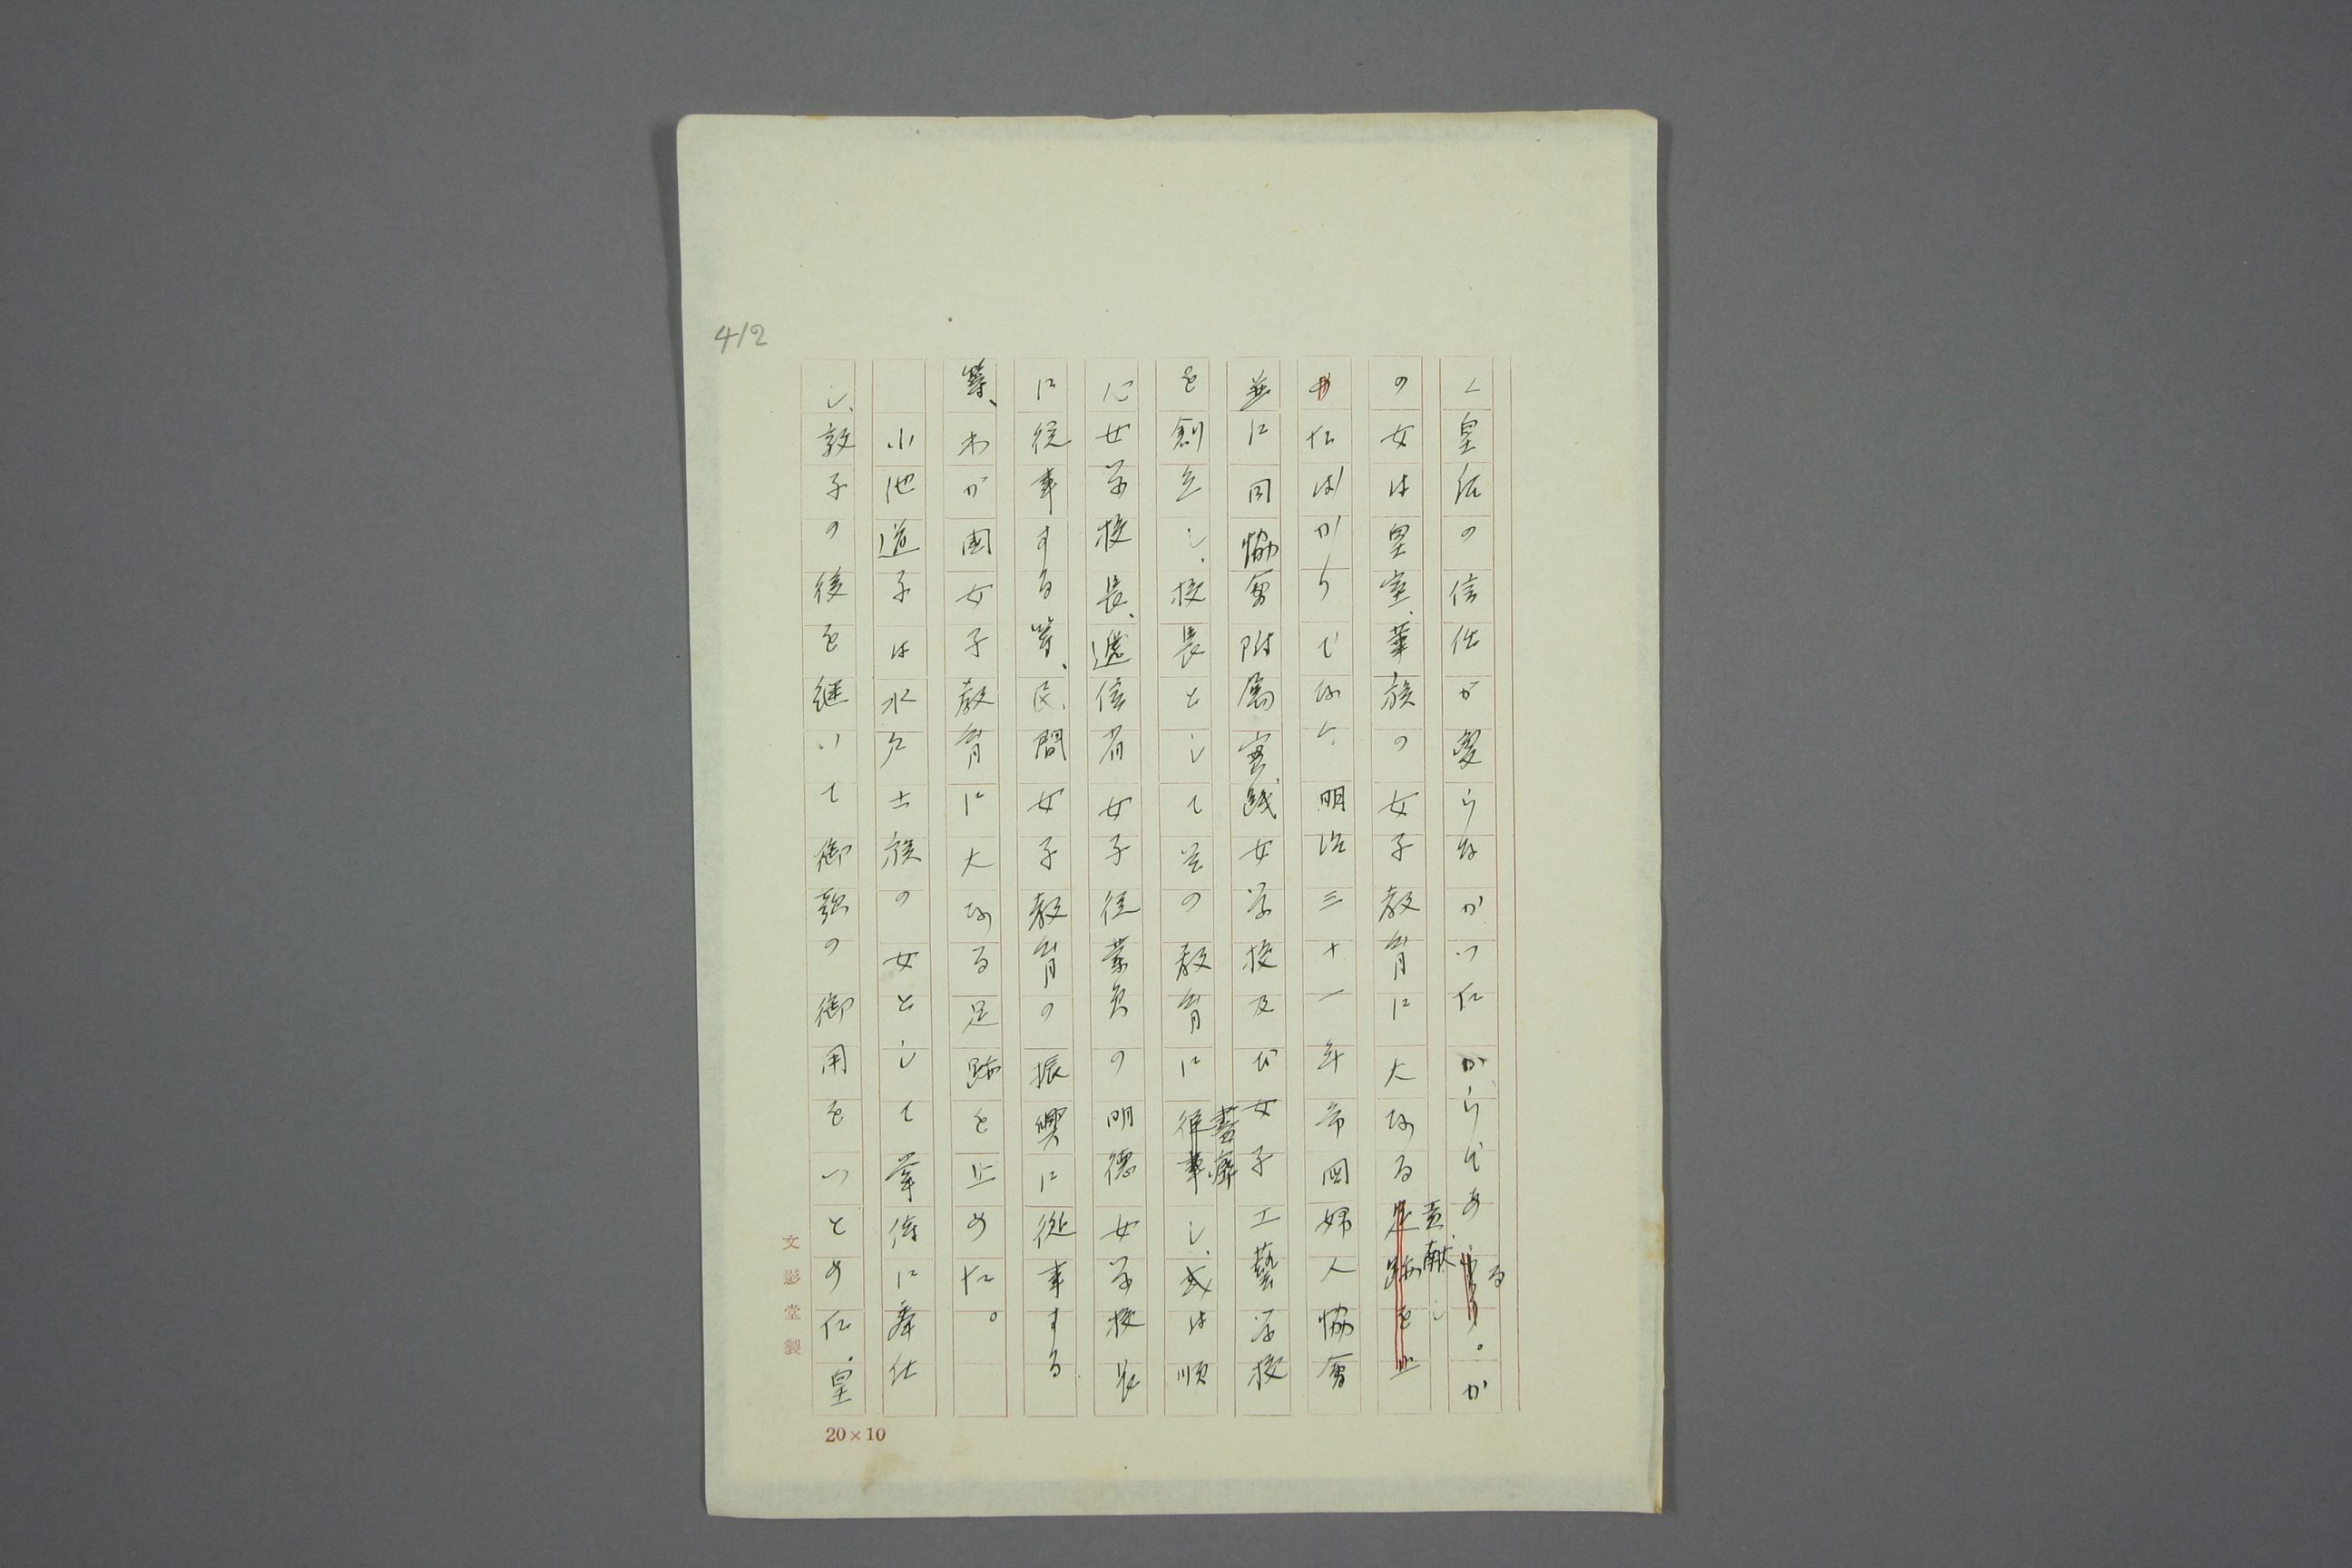 412
く皇后の信任が変らなかつたからである。か
の女は皇室、華族の女子教育に大なる貢献し
たばかりでなく、明治三十一年帝国婦人協會
並に同協會附属実践女学校及び女子工藝学校
を創立し、校長としてその教育に盡瘁し、或は順
心女学校長、逓信省女子従業員の明徳女学校長
に従事する等、民間女子教育の振興に従事する
等、わが国女子教育に大なる足跡を止めた。
小池道子は水戸士族の女として掌侍に奉仕
し、敦子の後を継いて御歌の御用をつとめた。皇
文影堂製
20×10